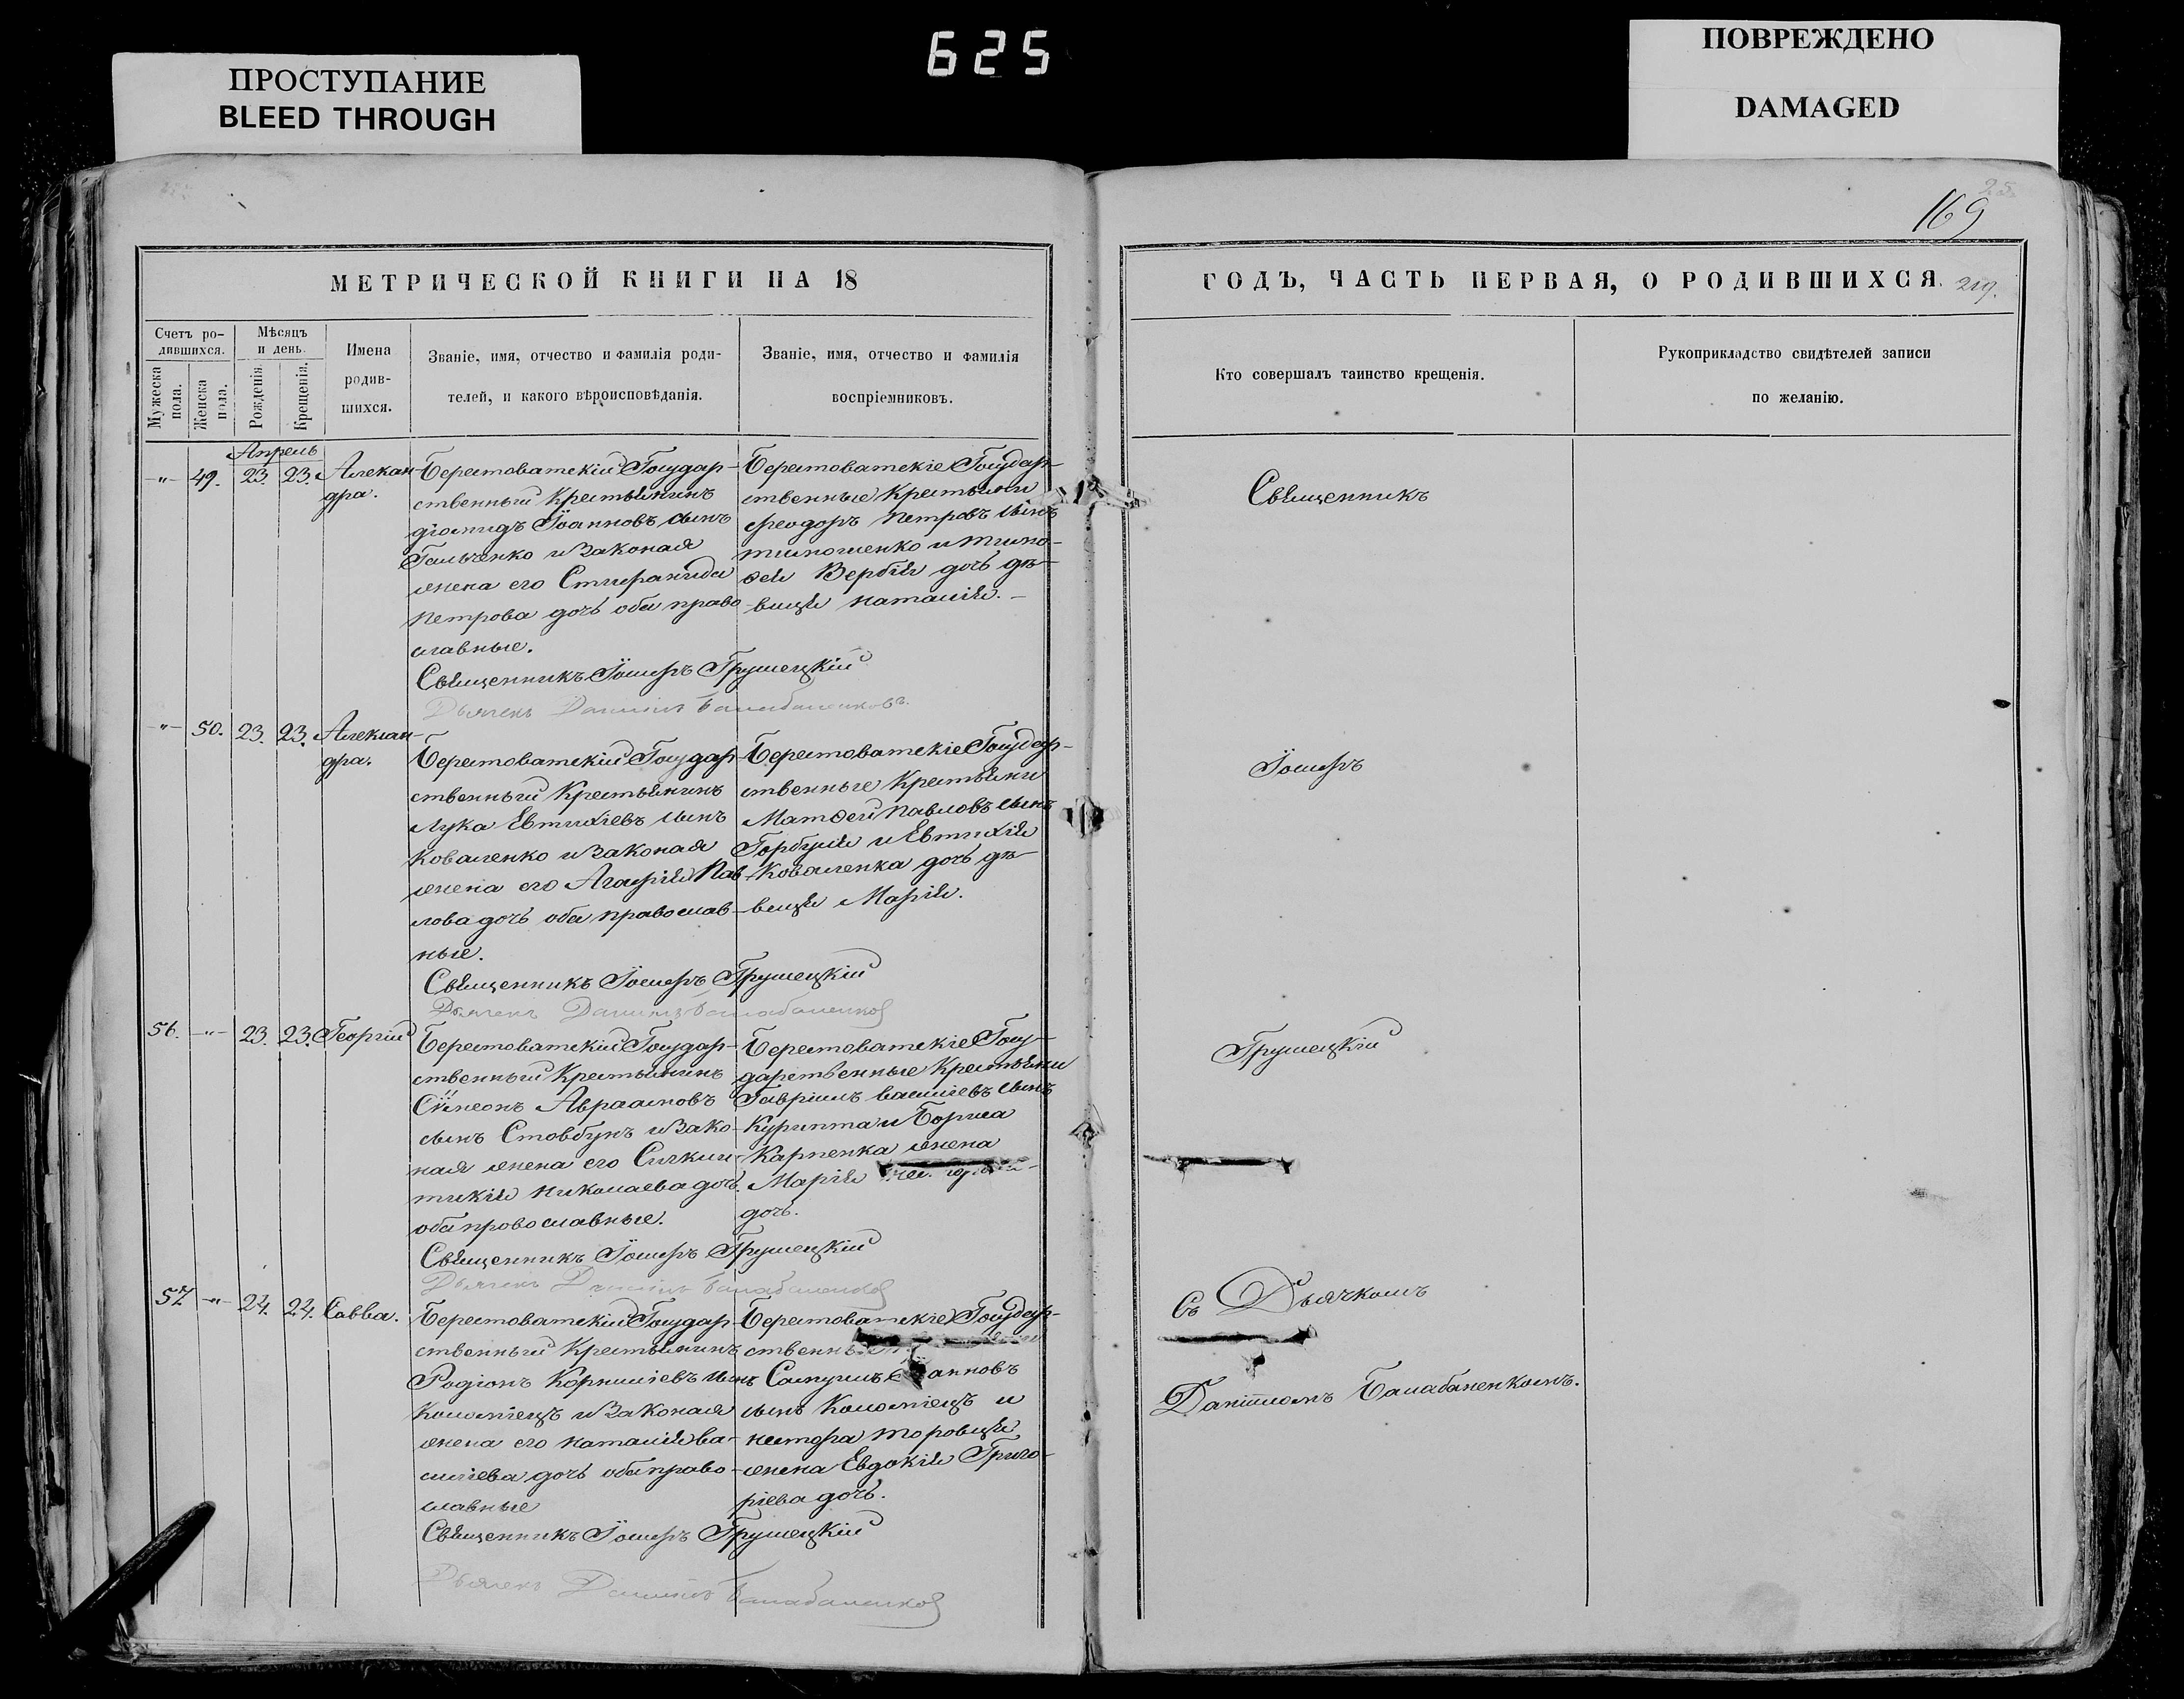 ПРОСТУПАНИЕ
BLEED THROUGH
625
ПОВРЕЖДЕНО
DAMAGED
169
25
МЕТРИЧЕСКОЙ КНИГИ НА 18
Счетъ ро-
дившихся.
Мужеска
пола.
Женска
пола.
Мѣсяцъ
и день.
Рожденія.
Крещенія.
Имена
родив-
шихся.
Званіе, имя, отчество и фамилія роди-
телей, и какого вѣроисповѣданія.
Званіе, имя, отчество и фамилія
воспріемниковъ.
Апрель
-"- 49. 23. 23. Алексан-
дра.
Берестоватскій Государ-
ственный Крестьянинъ
Діомидъ Іоанновъ сынъ
Гальченко и Законая
жена его Стефанида
Петрова дочь оба право-
славные.
Священникъ Іосифъ Грушецкій
Дьячекъ Даніилъ Балабаненковъ
Берестоватскіе Государ-
ственные Крестьяни
Феодоръ Петровъ сынъ
Тимошенко и Тимо-
фея Вербія дочь дѣ-
вица Наталія.
-"- 50. 23. 23. Алексан-
дра.
Берестоватскій Государ-
ственный Крестьянинъ
Лука Евтихіевъ сынъ
Коваленко и Законая
жена его Агафія Пав-
лова дочь оба православ-
ные.
Священникъ Іосифъ Грушецкій
Дьячекъ Даніилъ Балабаненков
Берестоватскіе Государ-
ственные Крестьяни
Матѳей Павловъ сынъ
Горбуля и Евтихія
Коваленка дочь дѣ-
вица Марія.
56. -"- 23. 23. Георгій
Берестоватскій Государ-
ственный Крестьянинъ
Сѵмеонъ Авраамовъ
сынъ Стовбунъ и Зако-
ная жена его Сикли-
тикія Николаева дочь
оба провославные.
Священникъ Іосифъ Грушецкій
Дьячекъ Даніилъ Балабаненков
Берестоватскіе Госу-
дарственные Крестьяни
Гавріилъ Василіевъ сынъ
Курипта и Бориса
Карпенка жена
Марія
дочь.
57. -"- 24. 24. Савва.
Берестоватскій Государ-
ственный Крестьянинъ
Родіонъ Корниліевъ сынъ
Коломіецъ и Законая
жена его Наталія Ва-
силіева дочь оба право-
славные
Священникъ Іосифъ Грушецкій
Дьячекъ Даніилъ Балабаненков
Берестоватскіе Государ-
ственны
Самуилъ Іоанновъ
сынъ Коломіецъ и
Нестора Торовця
жена Евдокія Григо-
ріева дочь.
ГОДЪ, ЧАСТЬ ПЕРВАЯ, О РОДИВШИХСЯ. 219.
Кто совершалъ таинство крещенія.
Рукоприкладство свидѣтелей записи
по желанію.
Священникъ
Іосифъ
Грушецкій
Съ Дьячкомъ
Даніиломъ Балабаненкомъ.